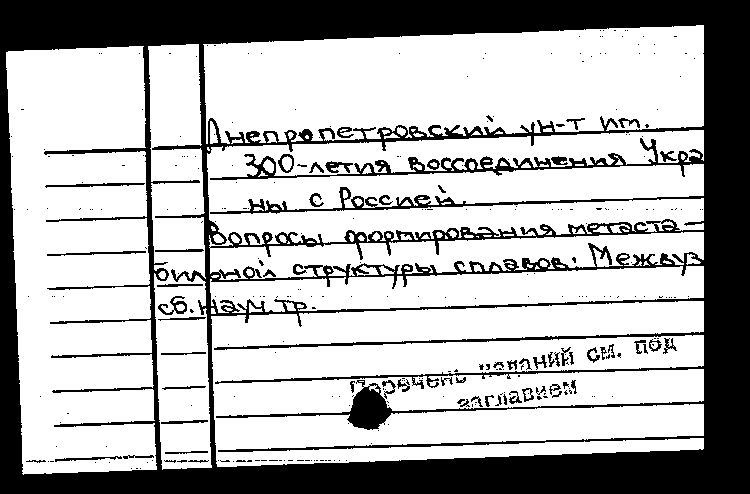 Днепропетровский ун-т им.
300-летия воссоединения Укра
ны с Россией.
Вопросы формирования метаста-
бильной структуры сплавов: Межвуз
сб. науч. тр.
Перечень изданий см. под
заглавием